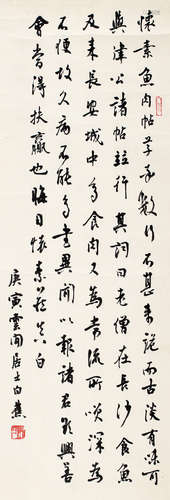 懷素魚肉帖草書數行不甚著說而古淡有味可
與律公諸帖竝行其詞曰老僧在長沙食魚
及來長安城中多食肉又為常流所笑深為
不便故久病不能多書異聞以報諸君欲興善
會當得扶羸也晦日懷素藏真白
庚寅雲間居士白蕉